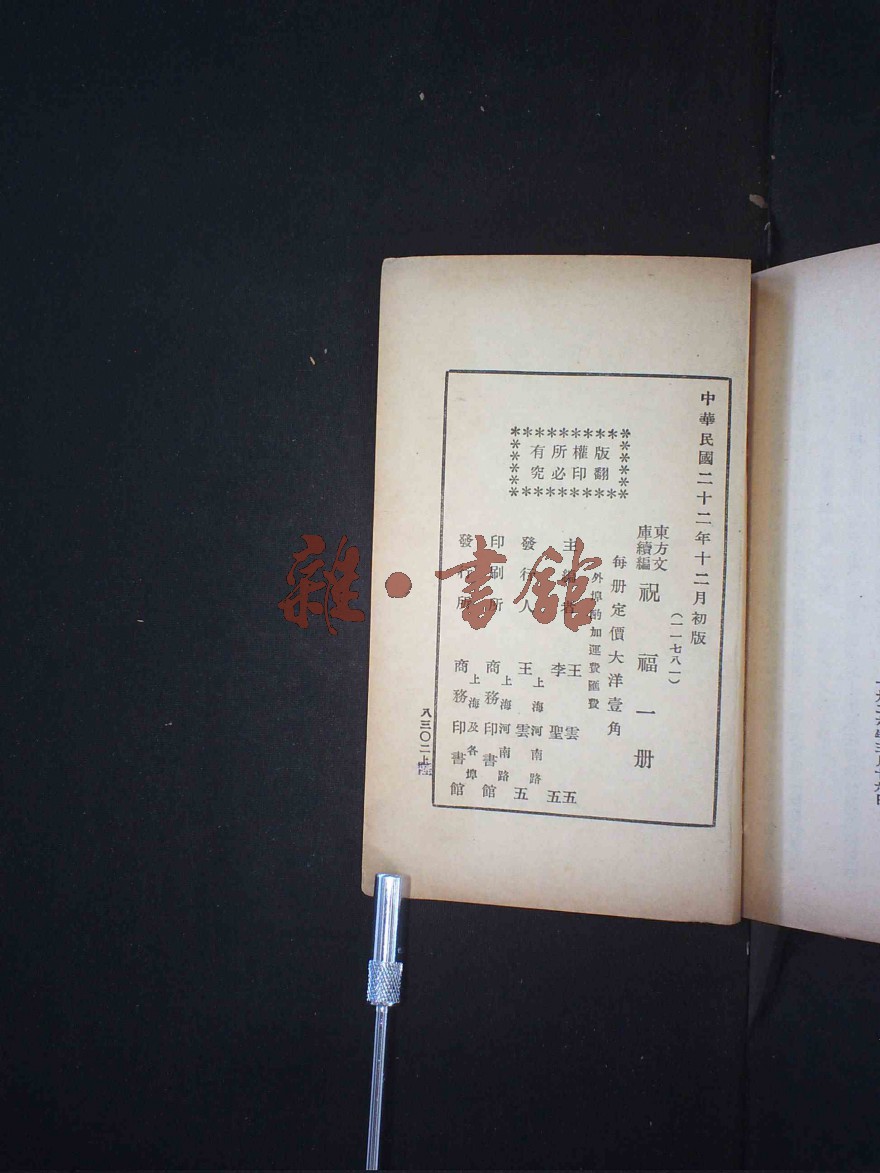 中華民國二十二年十二月初版
(一一七八一)
東方文
庫續編
祝福一册
每册定價大洋壹角
外埠酌加運費匯費
主編者
王雲五
李聖五
發行人
上海河南路
王雲五
印刷所
上海河南路
商務印書館
發行所
上海及各埠
商務印書館
版權所有
翻印必究
八三〇二上
雜·書館